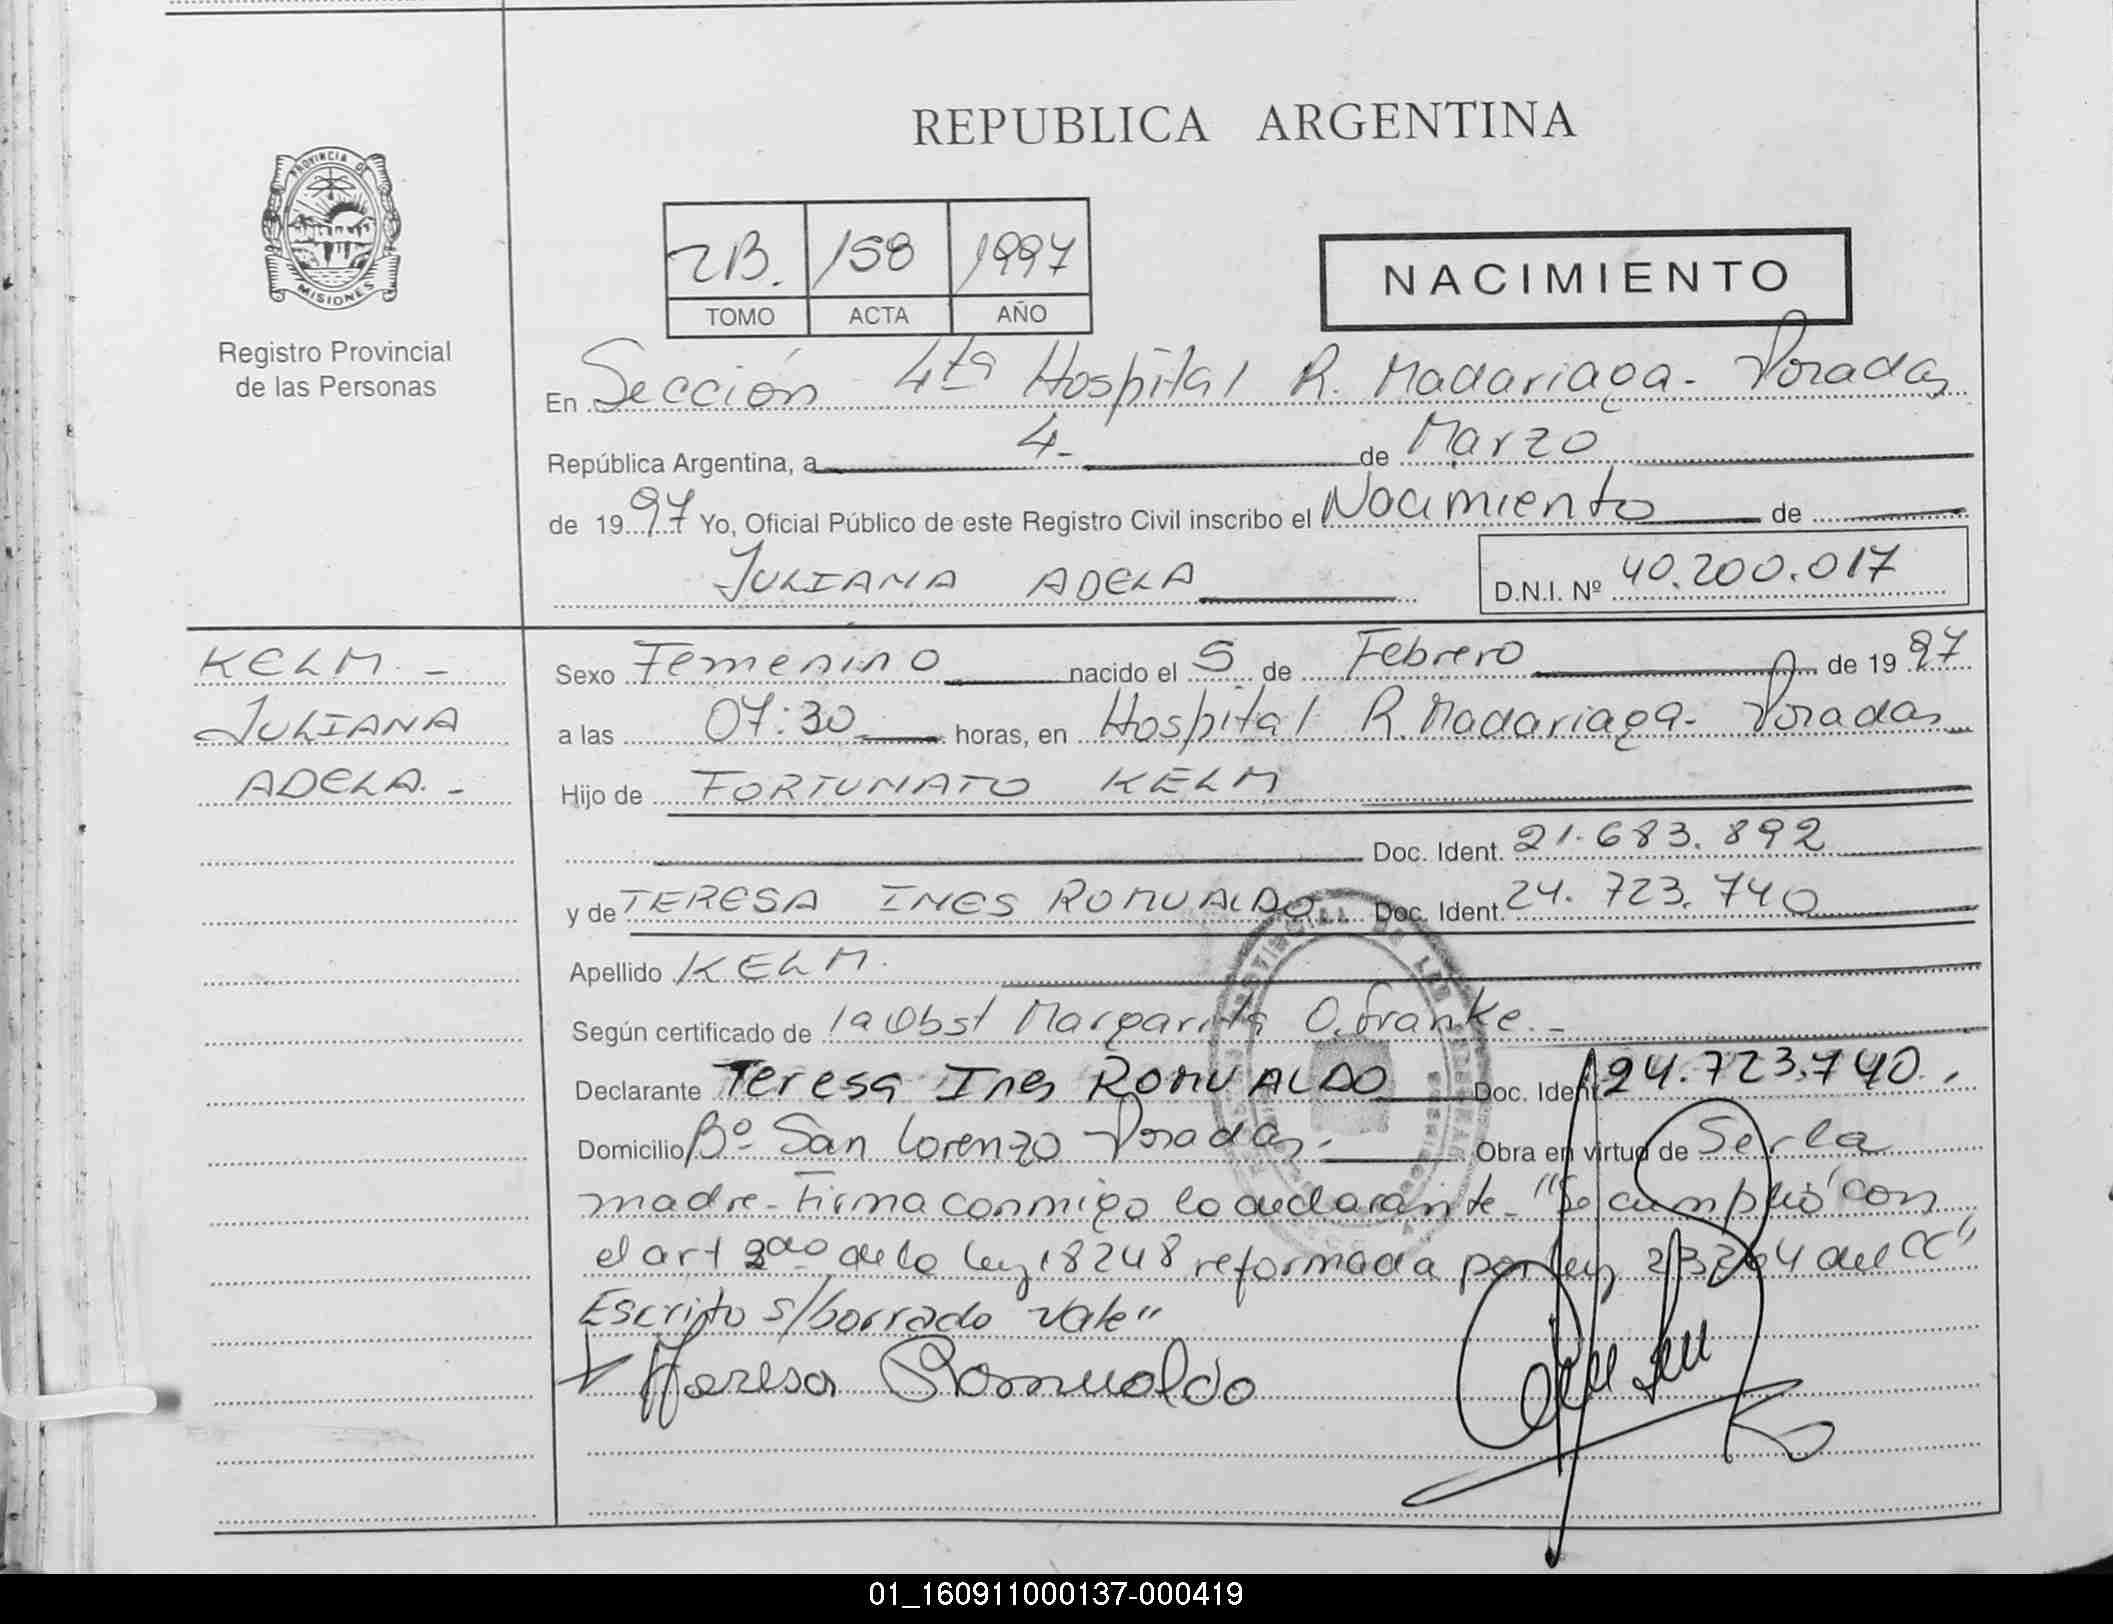 REPUBLICA ARGENTINA
PROVINCIA DE
MISIONES
Registro Provincial
de las Personas
2B. 158 1997
TOMO ACTA AÑO
NACIMIENTO
En Sección 4ta Hospital R. Madariaga - Posadas
República Argentina, a 4 - de Marzo
de 1997 Yo, Oficial Público de este Registro Civil inscribo el Nacimiento de
JULIANA ADELA
D.N.I. Nº 40.200.017
KELM. -
JULIANA
ADELA. -
Sexo Femenino nacido el 5 de Febrero de 1997
a las 07:30 horas, en Hospital R. Madariaga - Posadas
Hijo de FORTUNATO KELM
Doc. Ident. 21.683.892
y de TERESA INES ROMUALDO Doc. Ident. 24.723.740
Apellido KELM.
Según certificado de la Obst Margarita O. Franke. -
Declarante Teresa Ines ROMUALDO Doc. Ident. 24.723.740.
Domicilio Bº San Lorenzo Posadas. Obra en virtud de Ser la
madre - Firma conmigo la declarante - "Se cumplió con
el art 2do de la ley 18248 reformada por ley 23264 del CC"
Escrito s/borrado "Vale"
Teresa Romualdo
01_160911000137-000419